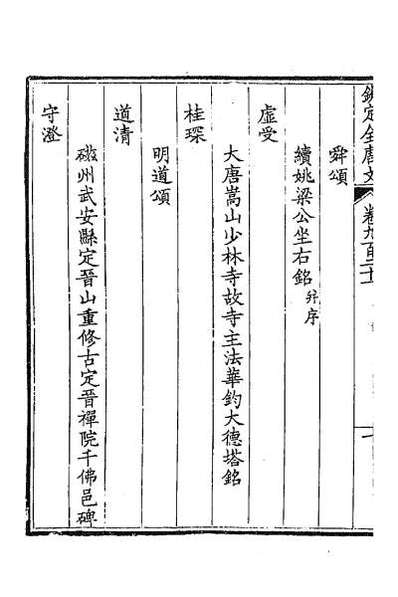 欽定全唐文 卷九百二十一
舜頌
續姚梁公坐右銘并序
虛受
大唐嵩山少林寺故寺主法華鈞大德塔銘
桂琛
明道頌
道清
磁州武安縣定晉山重修古定晉禪院千佛邑碑
守澄